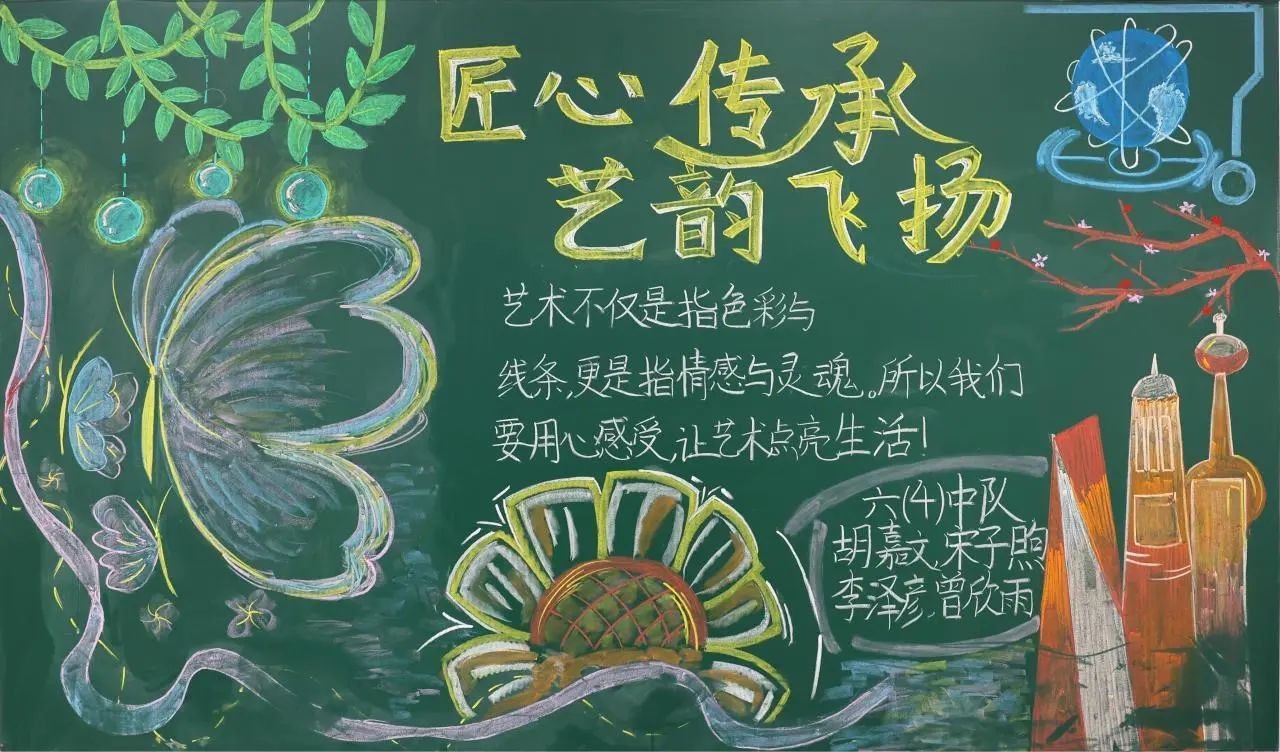 匠心传承
艺韵飞扬
艺术不仅是指色彩与
线条,更是指情感与灵魂。所以我们
要用心感受,让艺术点亮生活!
六(4)中队
胡嘉文,宋子煦
李泽彦,曾欣雨